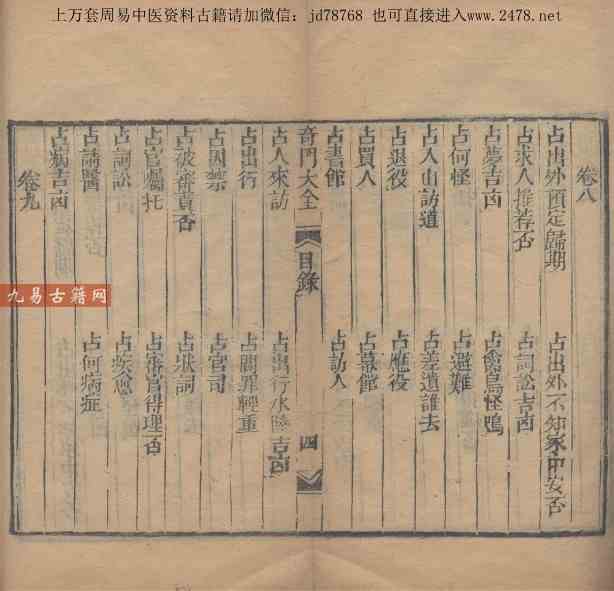 上万套周易中医资料古籍请加微信：jd78768 也可直接进入www.2478.net
卷八
占出外預定歸期
占出外不知家中安否
占求人推荐否
占詞訟吉凶
占夢吉凶
占禽鳥怪鳴
占何怪
占避難
占入山訪道
占差遣誰去
占退役
占應役
占買人
占幕館
占書館
占訪人
奇門大全
目錄
四
占人來訪
占出行水陸吉凶
占出行
占關罪輕重
占囚禁
占官司
占破審責否
占狀詞
占官囑托
占審官得理否
占詞訟
占疾愈
占請醫
占何病症
占病吉凶
卷九
九易古籍网